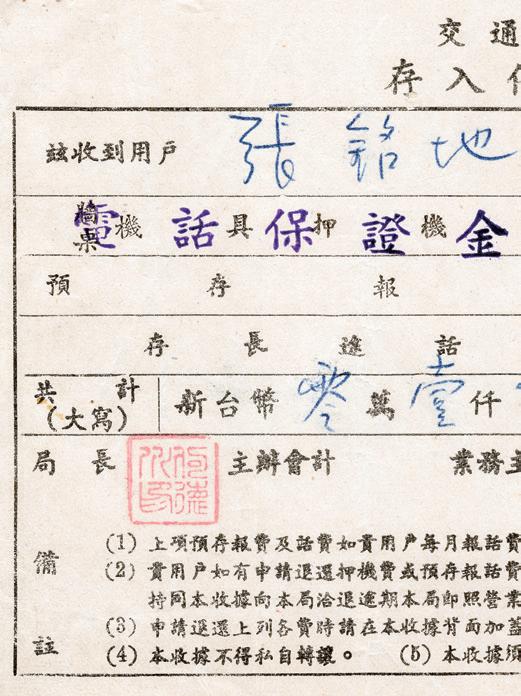 交通
存入
玆收到用戶 張銘地
電話保證金
機 具 押 機
預 存 報
存 長 途 話
共計(大寫) 新台幣 零 萬 壹 仟
局長 主辦會計 業務主
備註
(1) 上項預存報費及話費如貴用戶每月報話費
(2) 貴用戶如有申請退還押機費或預存報話費
持同本收據向本局洽退逾期本局即照營業
(3) 申請退還上列各費時請在本收據背面加蓋
(4) 本收據不得私自轉讓。 (5) 本收據須